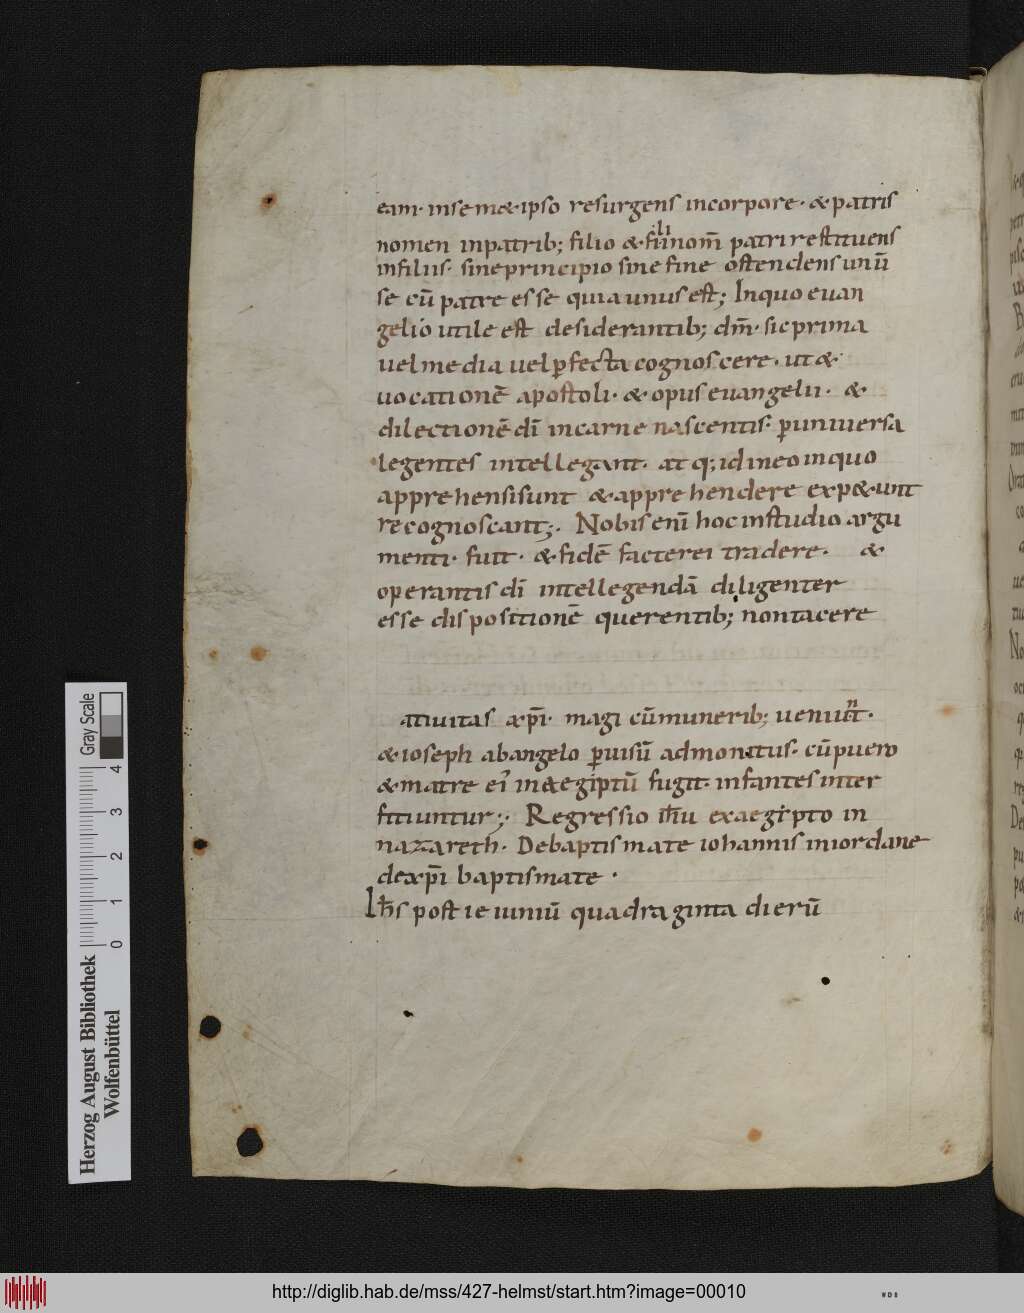 eam· insem&ipso resurgens incorpore· & patris
nomen inpatrib; filio & filii nom̅ patri restituens
infiliis· sineprincipio sine fine ostendens unū
se cū patre esse quia unus est; Inquo euan
gelio utile est desiderantib; dm̅· sicprima
uel media uelꝑfecta cognoscere· ut &
uocationē apostoli· & opus euangelii· &
dilectionē dī incarne nascentis· ꝑuniuersa
legentes intellegant· atq; id ineo inquo
apprehensi sunt & apprehendere exp&unt
recognoscant;· Nobis enī hoc instudio argu
menti· fuit· & fidē factae rei tradere· &
operantis dī intellegendā diligenter
esse dispositionē querentib; non tacere
atiuitas xp̄i· magi cūmunerib; ueniunt·
& ioseph abangelo ꝑuisū admonitus· cūpuero
& matre ei᾽ inaegiptū fugit· infantes inter
ficiuntur;· Regressio ih̄u exaegipto in
nazareth· De baptismate iohannis iniordane
dexp̄i baptismate·
Ih̄s post ieiuniū quadraginta dierū
Gray Scale
4
3
2
1
0
Herzog August Bibliothek
Wolfenbüttel
http://diglib.hab.de/mss/427-helmst/start.htm?image=00010